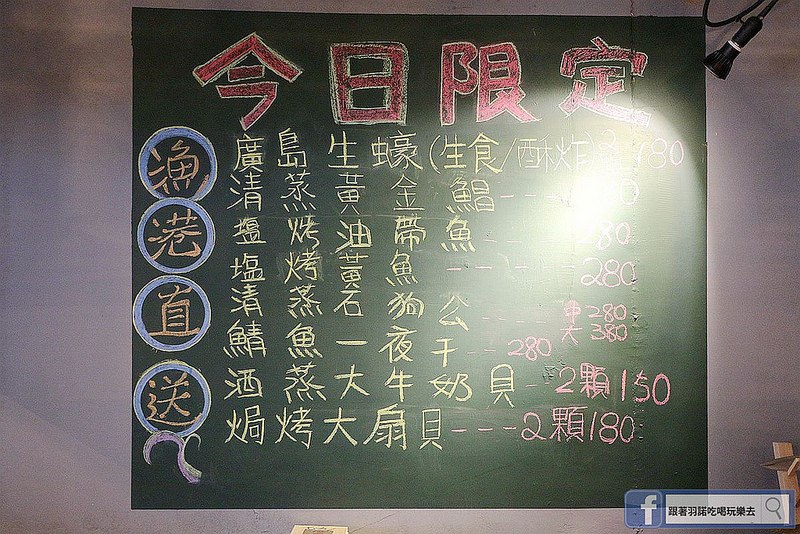 今日限定
漁港直送
廣島生蠔(生食/酥炸)180
清蒸黃金鯧---0
鹽烤油帶魚---80
塩烤黃魚---280
清蒸石狗公----280
大380
鯖魚一夜干--280
酒蒸大牛奶貝-2顆150
焗烤大扇貝---2顆180
跟著羽諾吃喝玩樂去